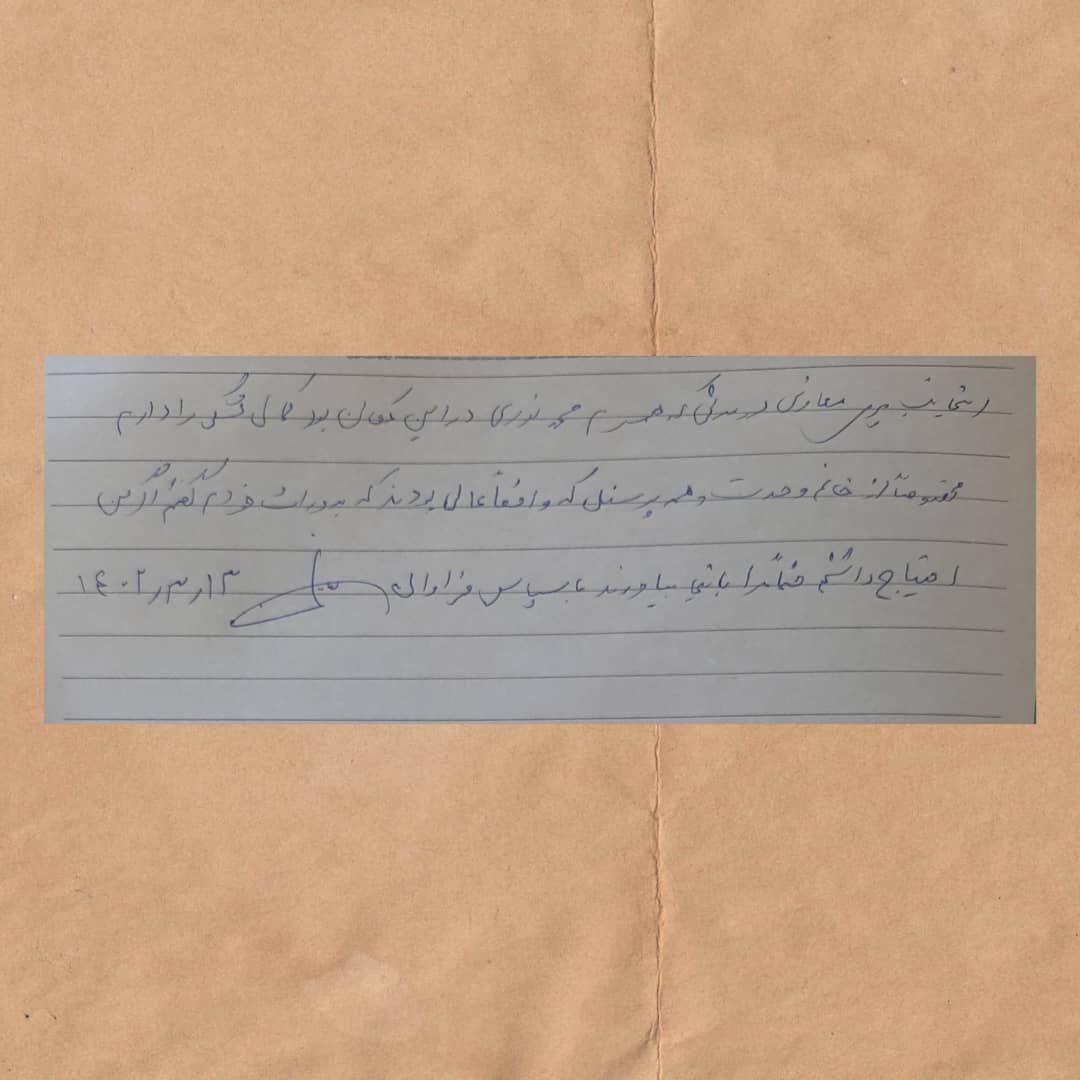 اینجانب معاذی در مدتی که همسرم مجید نوری در این مکان بود کمال تشکر را دارم
مخصوصاً از خانم وحدت و همه پرسنل که واقعاً عالی بودند که به دوستان خودم گفتم اگر این
احتیاج داشتم حتماً را با تجا بیاورند با سپاس فراوان ۱۴۰۲/۳/۱۳